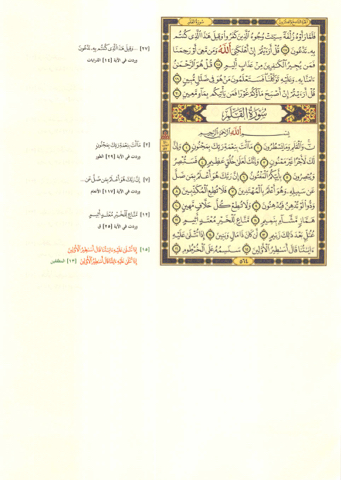 فَلَمَّا رَأَوْهُ زُلْفَةً سِيـَٔتْ وُجُوهُ الَّذِينَ كَفَرُوا وَقِيلَ هَٰذَا الَّذِي كُنتُم
بِهِ تَدَّعُونَ ٢٧ قُلْ أَرَءَيْتُمْ إِنْ أَهْلَكَنِيَ اللَّهُ وَمَن مَّعِيَ أَوْ رَحِمَنَا
فَمَن يُجِيرُ الْكَٰفِرِينَ مِنْ عَذَابٍ أَلِيمٍ ٢٨ قُلْ هُوَ الرَّحْمَٰنُ
ءَامَنَّا بِهِ وَعَلَيْهِ تَوَكَّلْنَا فَسَتَعْلَمُونَ مَنْ هُوَ فِي ضَلَٰلٍ مُّبِينٍ ٢٩
قُلْ أَرَءَيْتُمْ إِنْ أَصْبَحَ مَآؤُكُمْ غَوْرًا فَمَن يَأْتِيكُم بِمَآءٍ مَّعِينٍ ٣٠
سُورَةُ الْقَلَمِ
بِسْمِ اللَّهِ الرَّحْمَٰنِ الرَّحِيمِ
نٓ وَالْقَلَمِ وَمَا يَسْطُرُونَ ١ مَآ أَنتَ بِنِعْمَةِ رَبِّكَ بِمَجْنُونٍ ٢ وَإِنَّ
لَكَ لَأَجْرًا غَيْرَ مَمْنُونٍ ٣ وَإِنَّكَ لَعَلَىٰ خُلُقٍ عَظِيمٍ ٤ فَسَتُبْصِرُ
وَيُبْصِرُونَ ٥ بِأَييِّكُمُ الْمَفْتُونُ ٦ إِنَّ رَبَّكَ هُوَ أَعْلَمُ بِمَن ضَلَّ
عَن سَبِيلِهِ وَهُوَ أَعْلَمُ بِالْمُهْتَدِينَ ٧ فَلَا تُطِعِ الْمُكَذِّبِينَ ٨
وَدُّوا لَوْ تُدْهِنُ فَيُدْهِنُونَ ٩ وَلَا تُطِعْ كُلَّ حَلَّافٍ مَّهِينٍ ١٠
هَمَّازٍ مَّشَّآءٍ بِنَمِيمٍ ١١ مَّنَّاعٍ لِّلْخَيْرِ مُعْتَدٍ أَثِيمٍ ١٢
عُتُلٍّ بَعْدَ ذَٰلِكَ زَنِيمٍ ١٣ أَن كَانَ ذَا مَالٍ وَبَنِينَ ١٤ إِذَا تُتْلَىٰ عَلَيْهِ
ءَايَٰتُنَا قَالَ أَسَٰطِيرُ الْأَوَّلِينَ ١٥ سَنَسِمُهُ عَلَى الْخُرْطُومِ ١٦
٥٦٤
[٢٧] ...وَقِيلَ هَٰذَا الَّذِي كُنتُم بِهِ تَدَّعُونَ
وردت في الآية [١٤] الذاريات
[٢] مَآ أَنتَ بِنِعْمَةِ رَبِّكَ بِمَجْنُونٍ
وردت في الآية [٢٩] الطور
[٧] إِنَّ رَبَّكَ هُوَ أَعْلَمُ بِمَن ضَلَّ عَن...
وردت في الآية [١١٧] الأنعام
[١٢] مَنَّاعٍ لِّلْخَيْرِ مُعْتَدٍ أَثِيمٍ
وردت في الآية [٢٥] ق
[١٥] إِذَا تُتْلَىٰ عَلَيْهِ ءَايَٰتُنَا قَالَ أَسَٰطِيرُ الْأَوَّلِينَ
إِذَا تُتْلَىٰ عَلَيْهِ ءَايَٰتُنَا قَالَ أَسَٰطِيرُ الْأَوَّلِينَ [١٣] المطففين